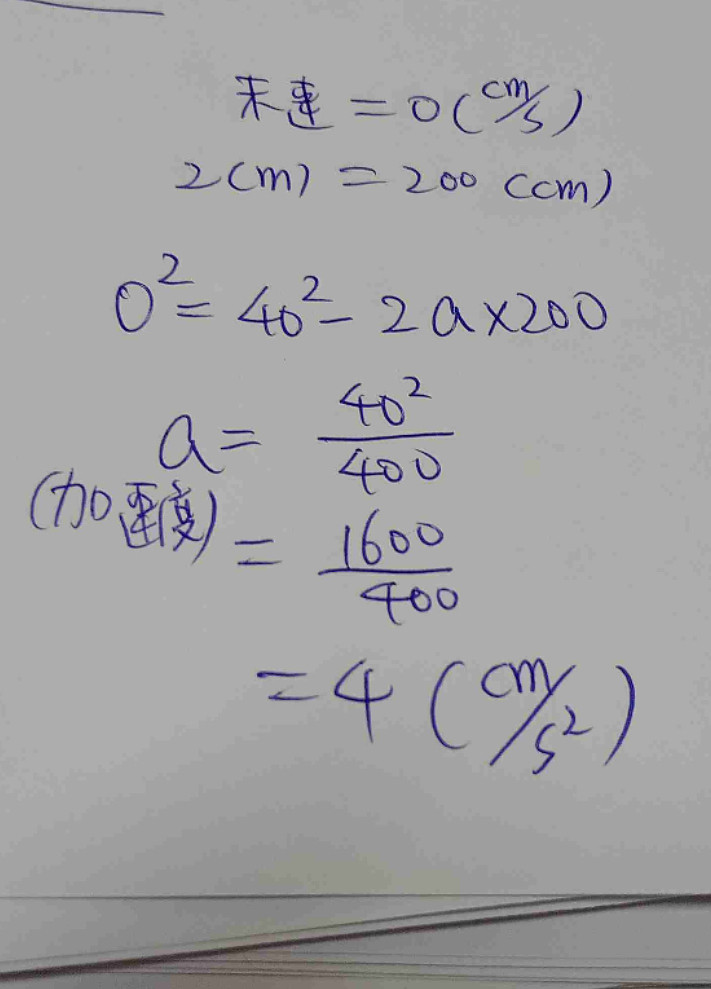 末速 = 0 (cm/s)
2 (m) = 200 (cm)
0² = 40² - 2a×200
a = 40²/400
(加速度) = 1600/400
= 4 (cm/s²)